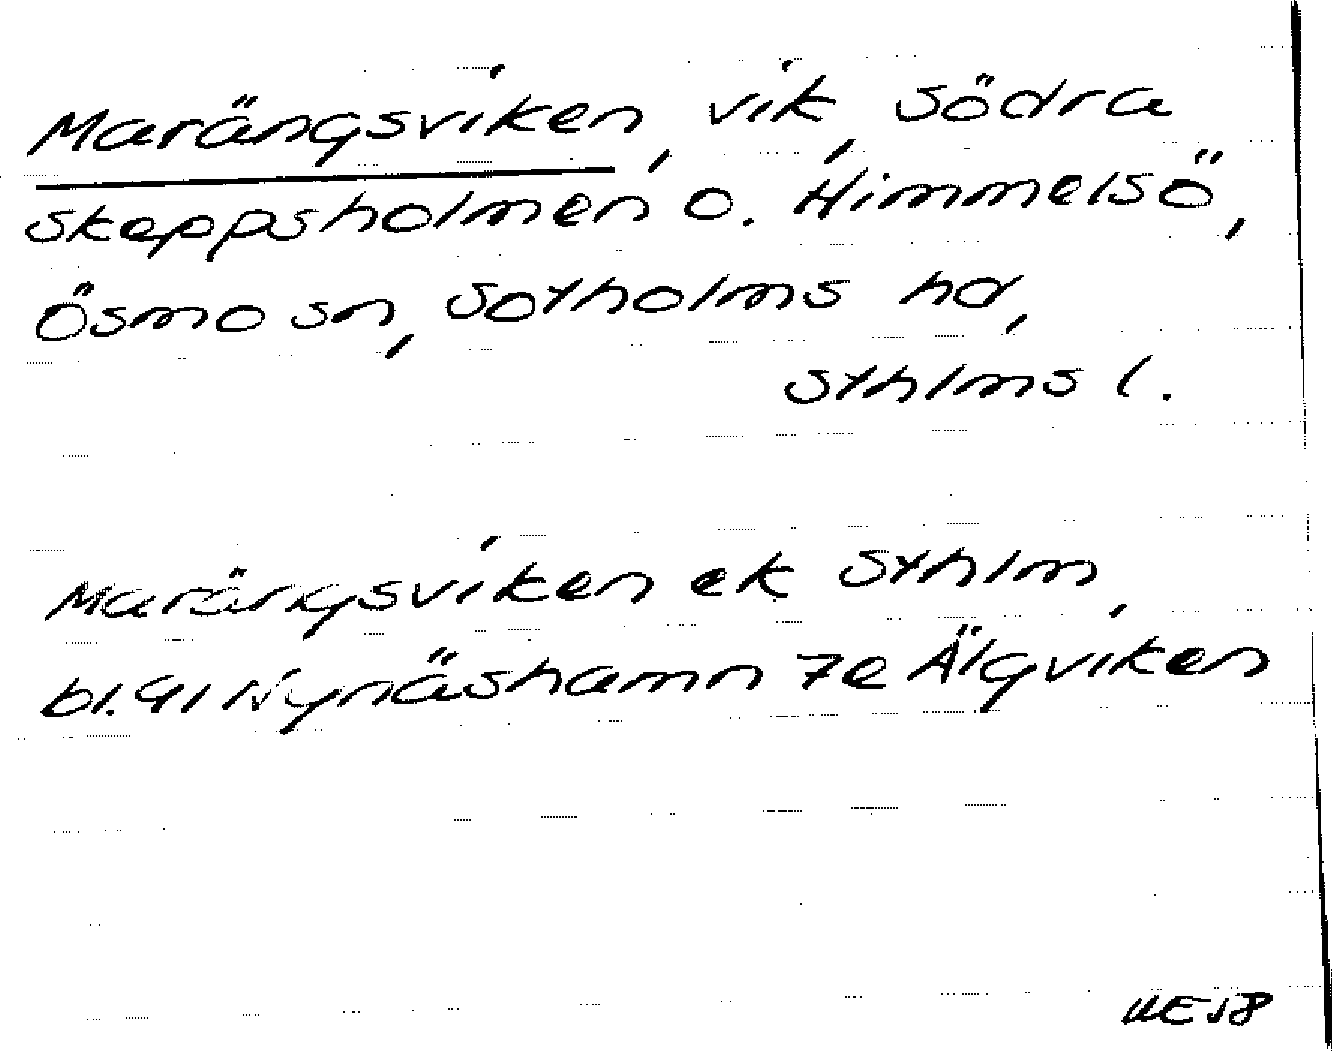 Marängsviken, vik, Södra
skeppsholmen o. Himmelsö,
Ösmo sn, Sotholms hd,
Sthlms l.
Marängsviken ek Sthlm,
bl. 91 Nynäshamn 7e Älgviken